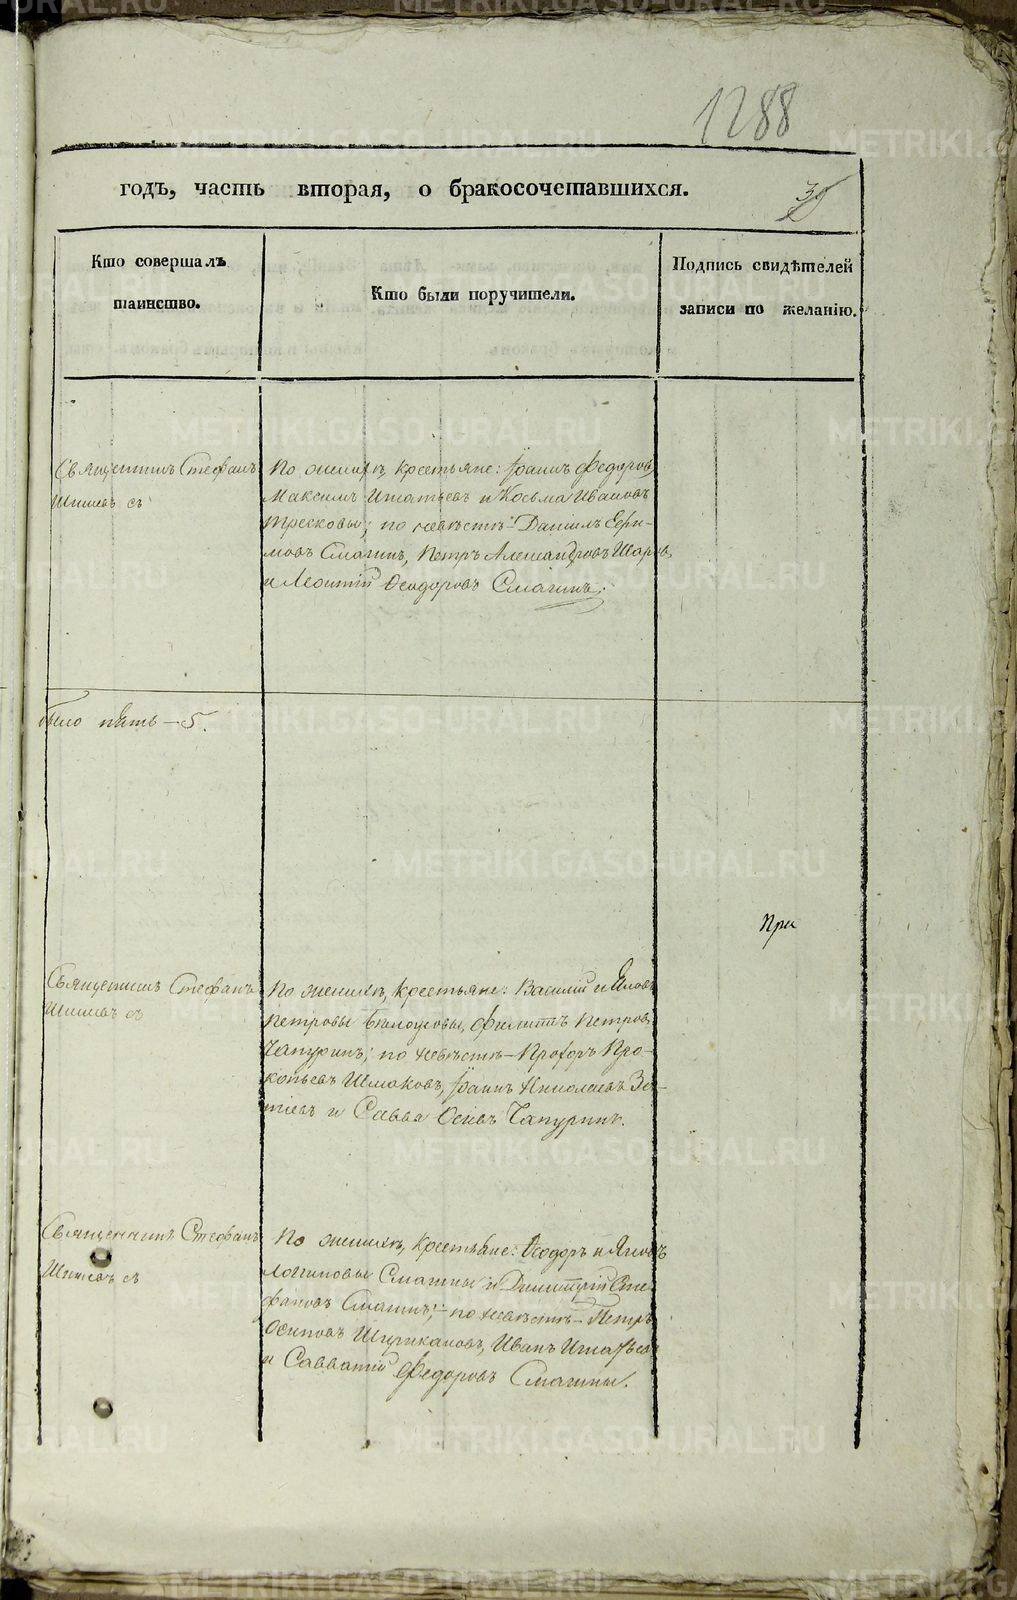 1288
годъ, часть вторая, о бракосочетавшихся.
35
Кто совершалъ
таинство.
Кто были поручители.
Подпись свидѣтелей
записи по желанію.
Священникъ Стефанъ
Шишевъ съ
По женихѣ, крестьяне: Іоаннъ Федоровъ
Максимъ Игнатьевъ и Косьма Ивановъ
Тресковы; по невѣстѣ - Даніилъ Ефи-
мовъ Смагинъ, Петръ Александровъ Шаровъ
и Леонтій Ѳеодоровъ Смагинъ.
было пять - 5.
При
Священникъ Стефанъ
Шишевъ съ
По женихѣ, крестьяне: Василій и Яковъ
Петровы Бѣлоусовы, Филиппъ Петровъ
Чапуринъ; по невѣстѣ - Прохоръ Про-
копьевъ Шмаковъ, Іоаннъ Николаевъ
и Савва Осиевъ Чапуринъ.
Священникъ Стефанъ
Шишевъ съ
По женихѣ, крестьяне: Ѳеодоръ и Яковъ
Логиновы Смагины и Димитрій Сте-
фановъ Смагинъ; по невѣстѣ - Петръ
Осиповъ Шурикановъ, Иванъ Игнатьевъ
и Савватій Федоровъ Смагины.
METRIKI.GASO-URAL.RU